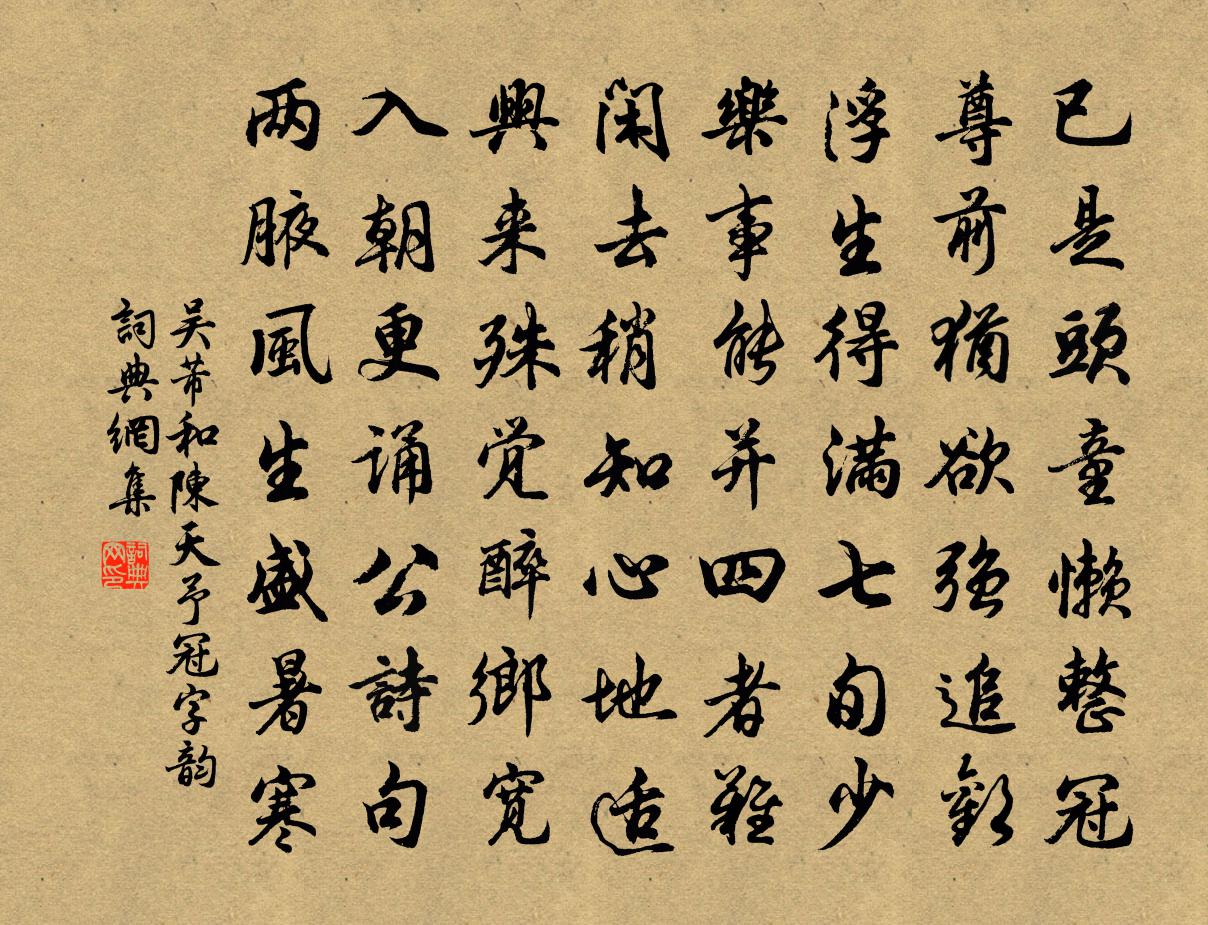 已是頭童懶整冠
尊前猶欲强追歡
浮生得滿七旬少
樂事能并四者難
閑去稍知心地适
興来殊覚醉鄉寬
入朝更诵公詩句
两腋風生盛暑寒
吴芾和陳天予冠字韵
詞典網集
詞典网印